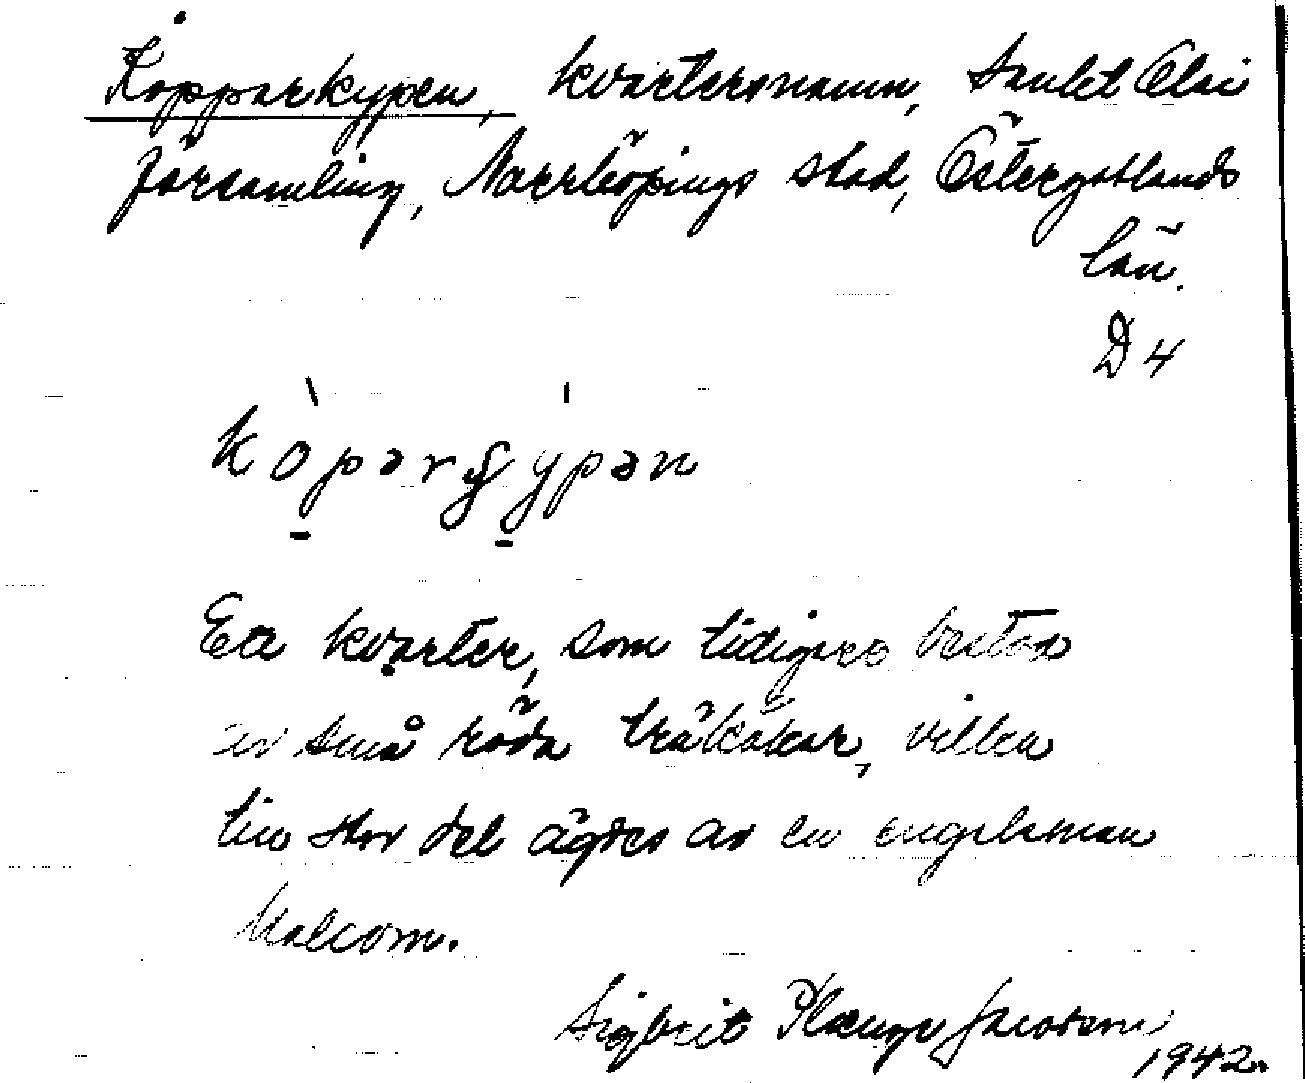 Kopparkypen, kvartersnamn, Sankt Olai
församling, Norrköpings stad, Östergötlands
län.
D 4
Ett kvarter, som tidigare bestod
av små röda träkåkar, vilka
till stor del ägdes av en engelsman
Malcom.
Sigbrit Plænge Jacobson
1942.